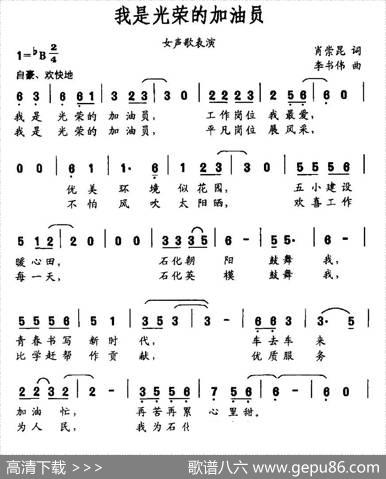 我是光荣的加油员
女声歌表演
1=♭B 2/4
肖崇昆 词
自豪、欢快地
李书伟 曲
6 3 | 6 61 | 3 323 | 30 | 2 223 | 16 | 2 56 | 60 |
我是 光荣的 加油员, 工作岗位 我最爱,
我是 光荣的 加油员, 平凡岗位 展风采,
00 | 00 | 6 61 | 1· 6 | 1 2223 | 30 | 00 | 5556 |
优美 环境 似花园, 五小建设
不怕 风吹 太阳晒, 欢喜工作
5 12 | 20 | 00 | 3335 | 6 - | 55· | 6 - | 60 |
暖心田, 石化朝阳 鼓舞我,
每一天, 石化英模 鼓舞我,
5556 | 51 | 335 | 3 - | 30 | 663 | 3· 5 |
青春书写 新时代, 车去车来
比学赶帮 作贡献, 优质服务
2 23 | 2 - | 20 | 3556 | 556 | 6 - | 60
加油忙, 再苦再累 心里甜。
为人民, 我为石化
高清下载 >>>
歌谱八六 www.gepu86.com